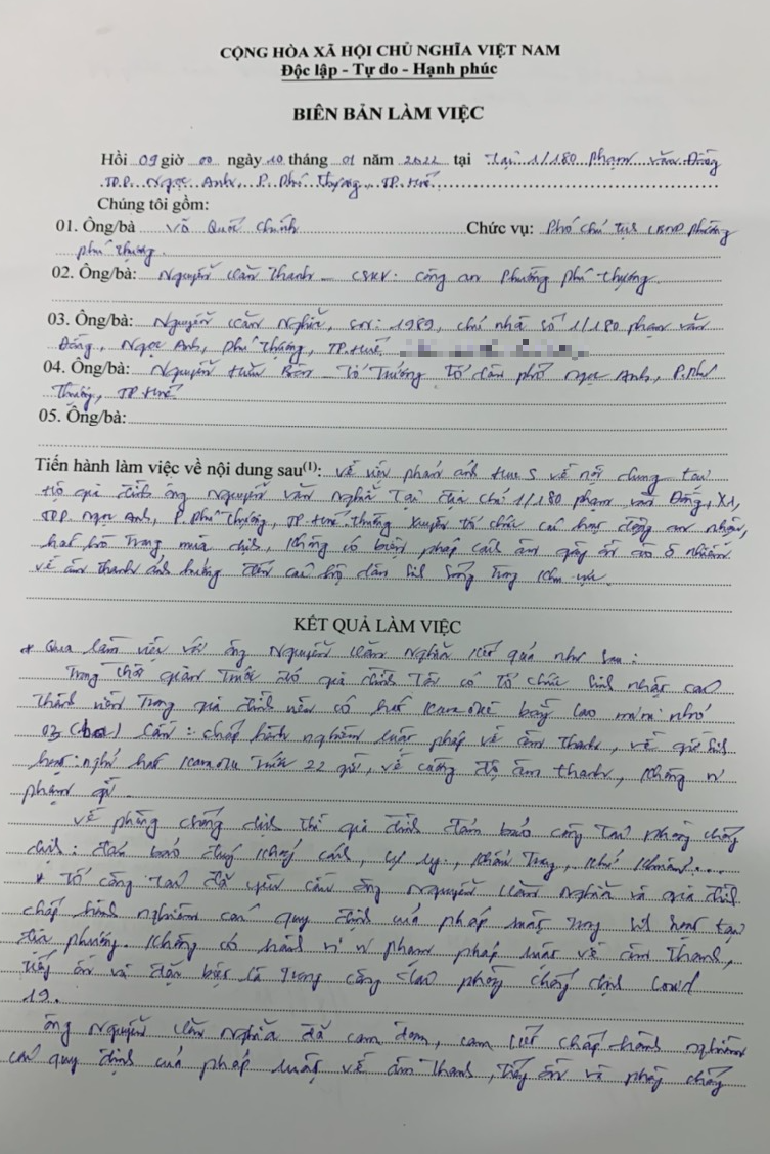 CỘNG HÒA XÃ HỘI CHỦ NGHĨA VIỆT NAM
Độc lập - Tự do - Hạnh phúc
BIÊN BẢN LÀM VIỆC
Hồi 09 giờ 00 ngày 10 tháng 01 năm 2022 tại Tại 1/180 Phạm Văn Đồng
TDP. Ngọc Anh, P. Phú Thượng, TP. Huế
Chúng tôi gồm:
01. Ông/bà Võ Quốc Chính Chức vụ: Phó chủ tịch UBND phường
Phú Thượng.
02. Ông/bà: Nguyễn Văn Thanh - CSKV: Công an Phường Phú Thượng
03. Ông/bà: Nguyễn Văn Nghĩa, sn: 1989, chủ nhà số 1/180 Phạm Văn
Đồng, Ngọc Anh, Phú Thượng, TP. Huế
04. Ông/bà: Nguyễn - Tổ Trưởng tổ dân phố Ngọc Anh, P. Phú
Thượng, TP. Huế
05. Ông/bà:
Tiến hành làm việc về nội dung sau(1): về việc phản ánh Hue S về nội dung tại
Hộ gia đình ông Nguyễn Văn Nghĩa tại địa chỉ 1/180 Phạm Văn Đồng,
TDP Ngọc Anh, P. Phú Thượng, TP. Huế thường xuyên tổ chức các hoạt động ăn nhậu,
hát hò trong mùa dịch, không có biện pháp cách âm gây ồn ào ô nhiễm
về âm thanh ảnh hưởng đến các hộ dân sinh sống trong khu vực.
KẾT QUẢ LÀM VIỆC
* Qua làm việc với ông Nguyễn Văn Nghĩa kết quả như sau:
Trong thời gian trước đó gia đình có tổ chức sinh nhật các
thành viên trong gia đình nên có hát karaoke bằng loa mini nhỏ
03 (ba) lần: chấp hành nghiêm luật pháp về âm thanh, về giờ sinh
hoạt: nghỉ hát karaoke trước 22 giờ, về cường độ âm thanh, không vi
phạm gì.
Về phòng chống dịch thì gia đình đảm bảo công tác phòng chống
dịch: đảm bảo khoảng cách, cự ly, khẩu trang, khử khuẩn....
* Tổ công tác đã yêu cầu ông Nguyễn Văn Nghĩa và gia đình
chấp hành nghiêm các quy định của pháp luật trong sinh hoạt tại
địa phương. Không có hành vi vi phạm pháp luật về âm thanh,
tiếng ồn và đặc biệt là trong công tác phòng chống dịch Covid
19.
Ông Nguyễn Văn Nghĩa đã cam đoan, cam kết chấp hành nghiêm
các quy định của pháp luật về âm thanh, tiếng ồn và phòng chống